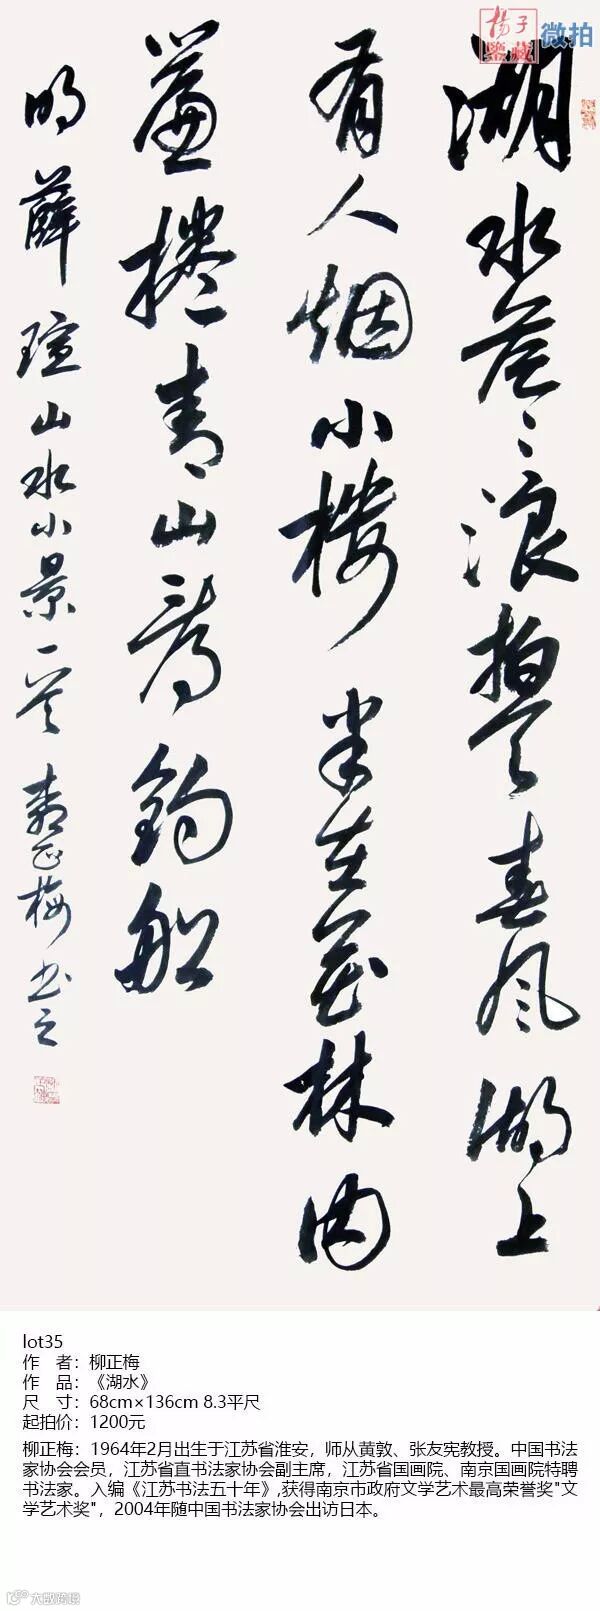 揚子
鑒藏
微拍
湖水苍〻浪拍天春风湖上
有人烟小楼半在花林内
簾捲青山看钓船
明薛瑄山水小景一首 柳正梅书之
lot35
作 者：柳正梅
作 品：《湖水》
尺 寸：68cm×136cm 8.3平尺
起拍价：1200元
柳正梅：1964年2月出生于江苏省淮安，师从黄敦、张友宪教授。中国书法
家协会会员，江苏省直书法家协会副主席，江苏省国画院、南京国画院特聘
书法家。入编《江苏书法五十年》,获得南京市政府文学艺术最高荣誉奖"文
学艺术奖"，2004年随中国书法家协会出访日本。
大数跨境